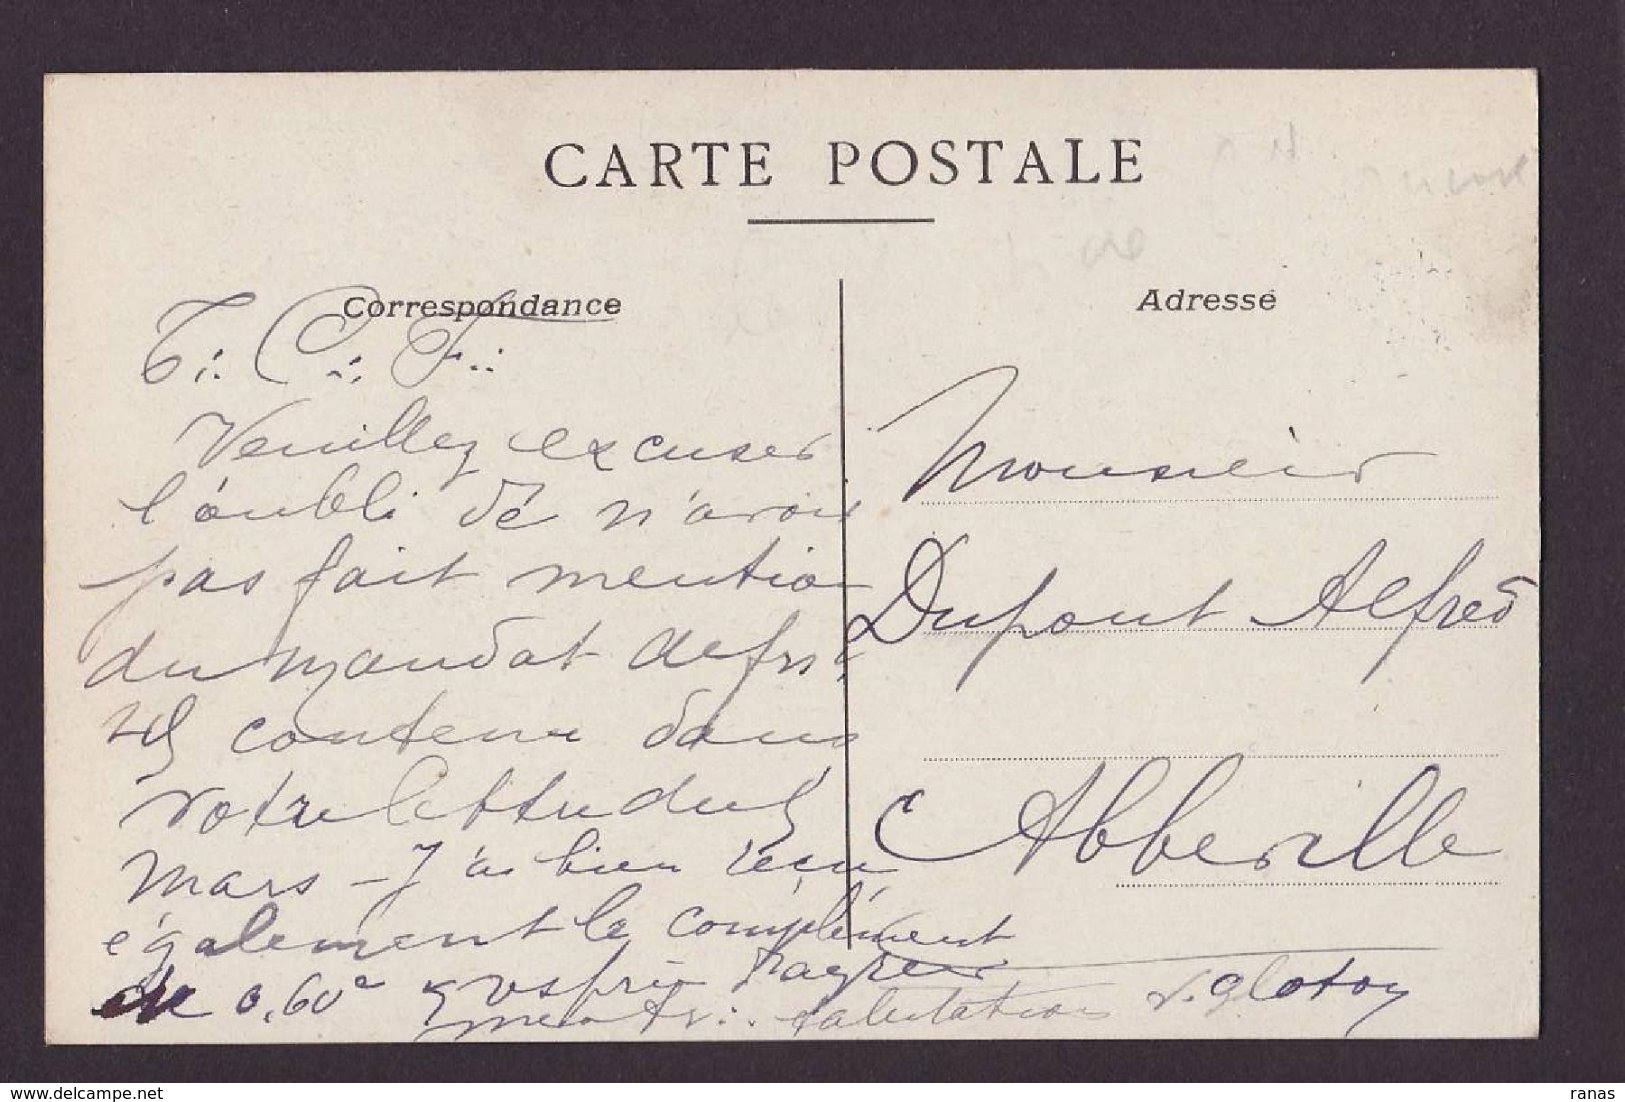 CARTE POSTALE
Correspondance
T∴ C∴ F∴
Veuillez excuser
l'oubli de n'avoir
pas fait mention
du mandat de frs
contenu dans
votre lettre du 5
mars - J'ai bien reçu
également le complément
de 0,60c vs prie d'agréer
mes frat∴ salutations
Adresse
Monsieur
Dupont Alfred
Abbeville
www.delcampe.net
ranas